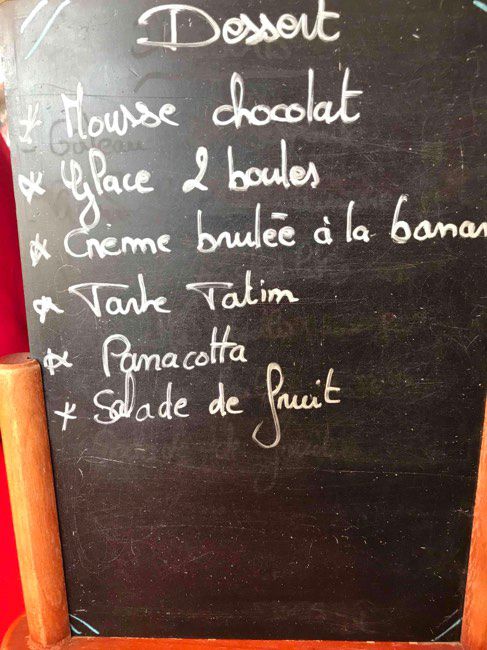 Dessert
* Mousse chocolat
* Glace 2 boules
* Crème brulée à la banan
* Tarte Tatim
* Panacotta
* Salade de fruit